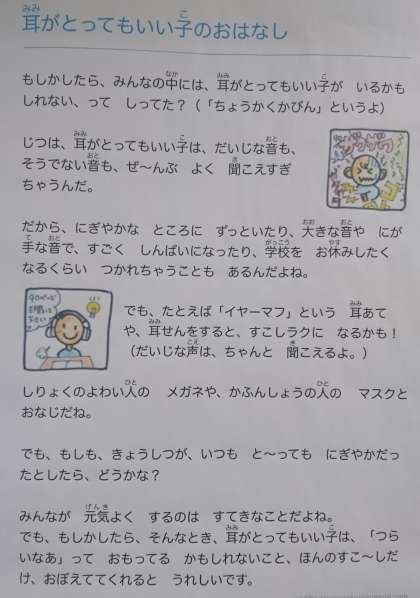 耳がとってもいい子のおはなし
もしかしたら、みんなの中には、耳がとってもいい子が いるかも
しれない、って しってた？（「ちょうかくかびん」というよ）
じつは、耳がとってもいい子は、だいじな音も、
そうでない音も、ぜ〜んぶ よく 聞こえすぎ
ちゃうんだ。
だから、にぎやかな ところに ずっといたり、大きな音や にが
手な音で、すごく しんぱいになったり、学校を お休みしたく
なるくらい つかれちゃうことも あるんだよね。
でも、たとえば「イヤーマフ」という 耳あて
や、耳せんをすると、すこしラクに なるかも！
（だいじな声は、ちゃんと 聞こえるよ。）
しりょくのよわい人の メガネや、かふんしょうの人の マスクと
おなじだね。
でも、もしも、きょうしつが、いつも と〜っても にぎやかだっ
たとしたら、どうかな？
みんなが 元気よく するのは すてきなことだよね。
でも、もしかしたら、そんなとき、耳がとってもいい子は、「つら
いなあ」って おもってる かもしれないこと、ほんのすこ〜しだ
け、おぼえててくれると うれしいです。